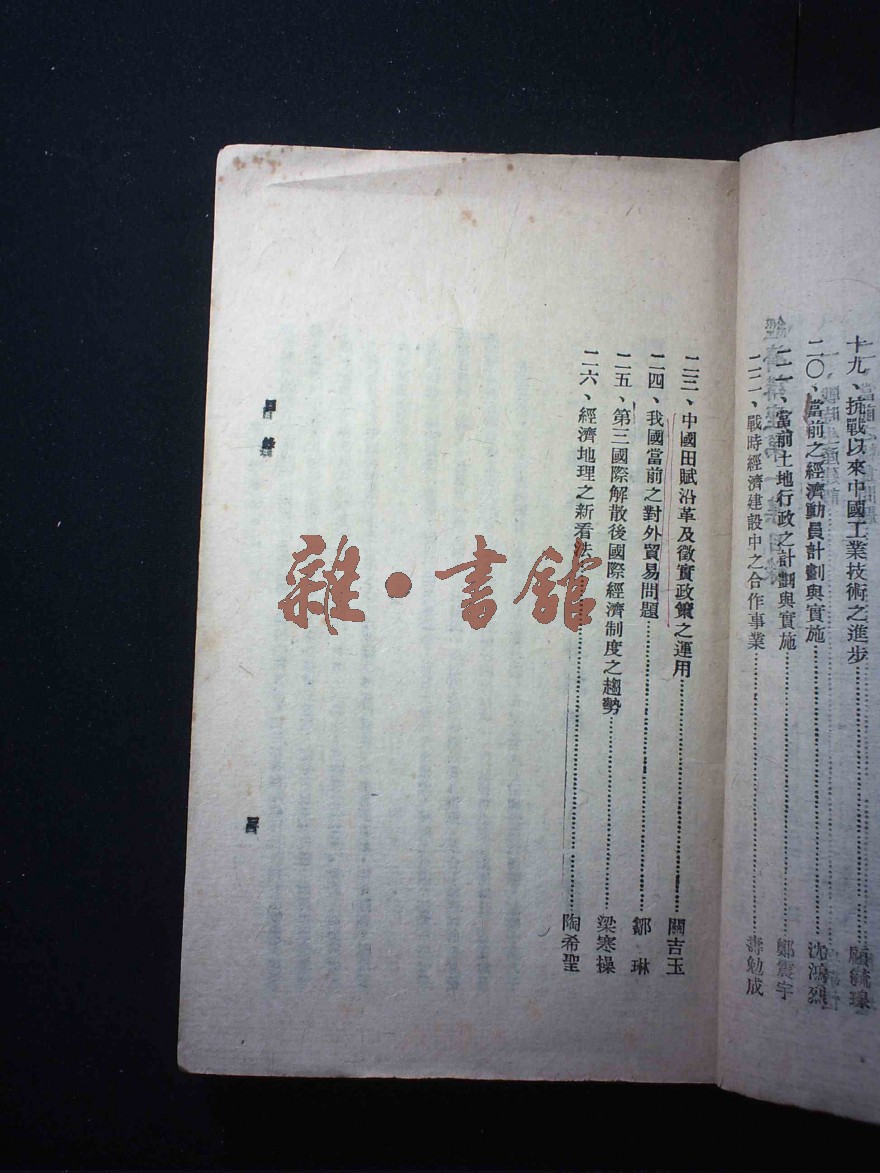 十九、抗戰以來中國工業技術之進步……顧毓瑔
二〇、當前之經濟動員計劃與實施……沈鴻烈
二一、當前土地行政之計劃與實施……鄭震宇
二二、戰時經濟建設中之合作事業……壽勉成
二三、中國田賦沿革及徵實政策之運用……關吉玉
二四、我國當前之對外貿易問題……鄒琳
二五、第三國際解散後國際經濟制度之趨勢……梁寒操
二六、經濟地理之新看法……陶希聖
目錄
雜·書館